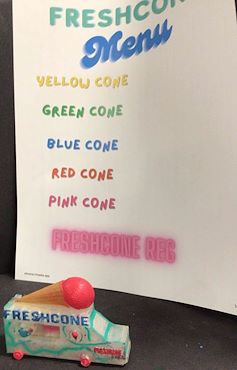 FRESHCON
Menu
YELLOW CONE
GREEN CONE
BLUE CONE
RED CONE
PINK CONE
FRESHCONE REG
FRESHCONE